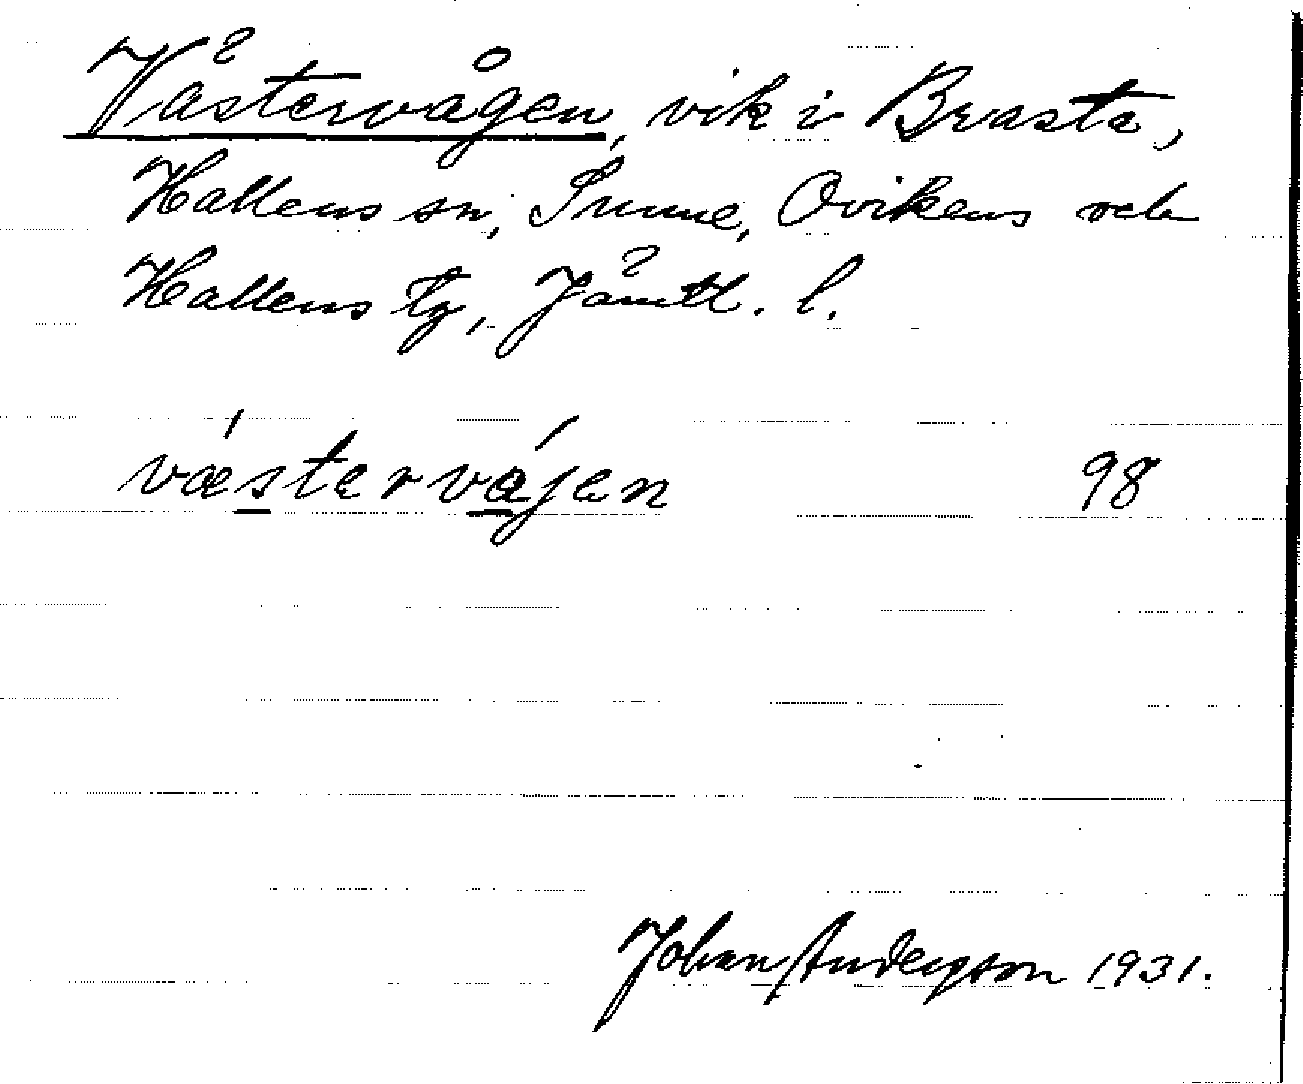 Västervågen, vik i Brasta,
Hallens sn, Sunne, Ovikens och
Hallens tg, Jämtl. l.
væstervåjen 98
Johan Anderzson 1931.